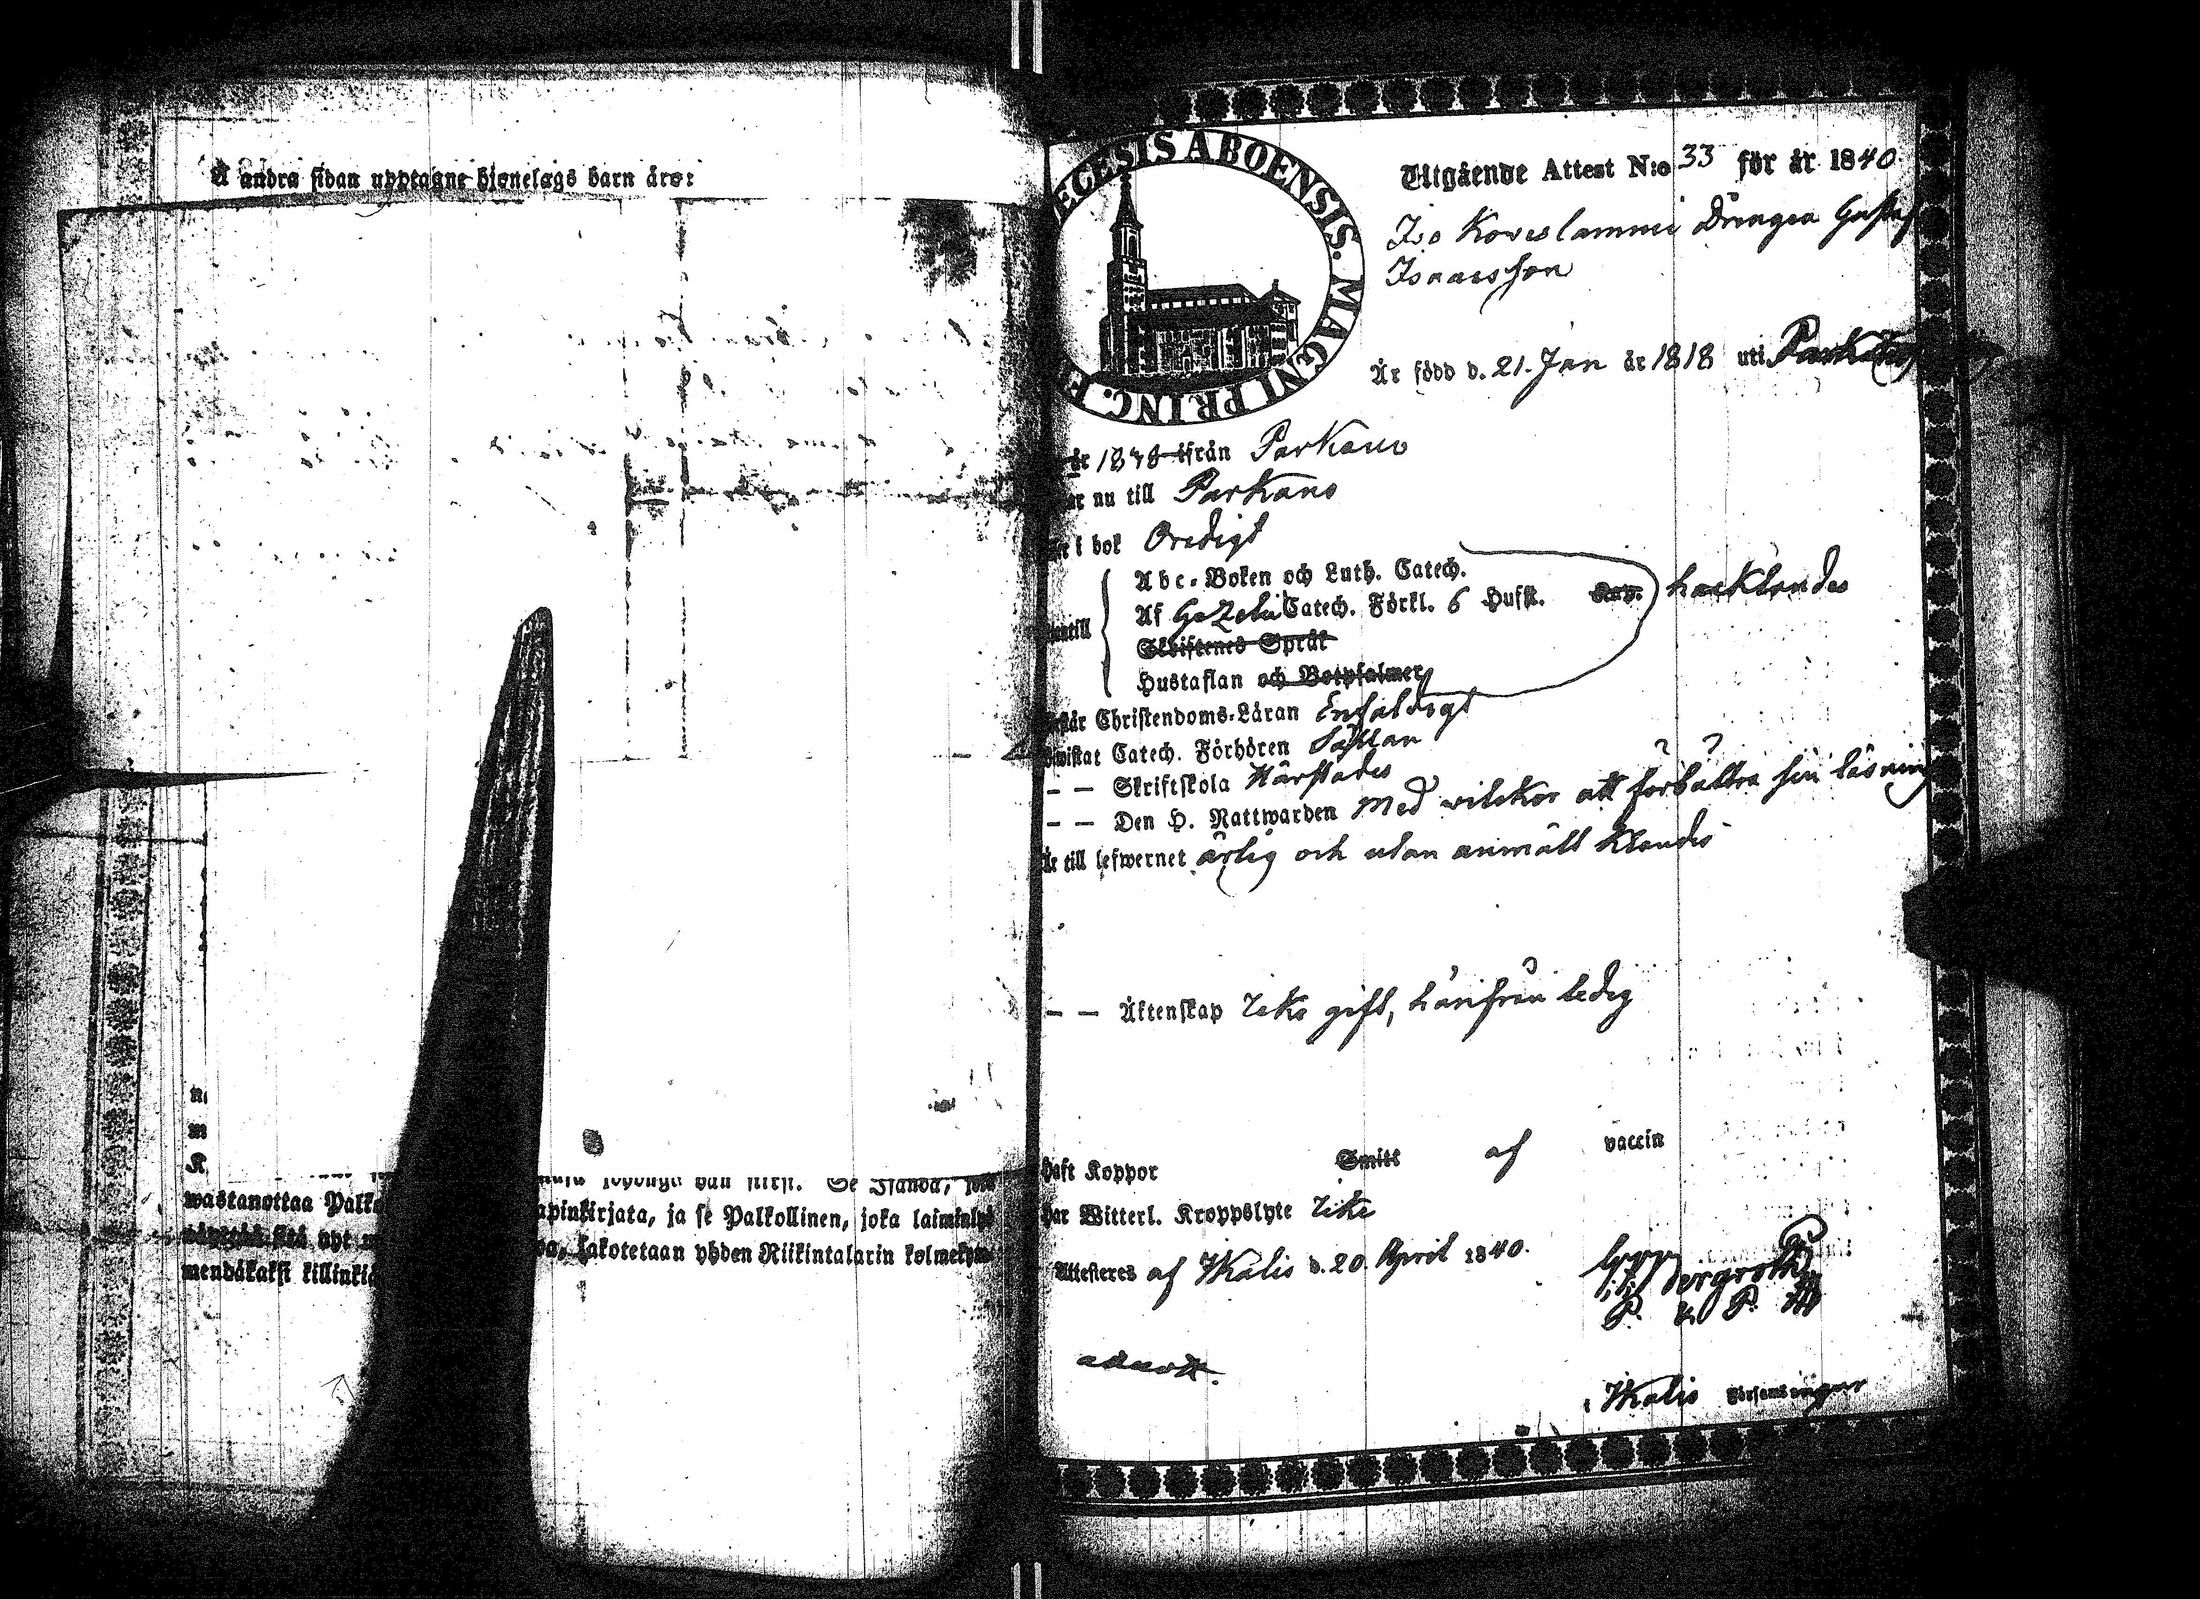 Å andra sidan upptagne hjonelags barn äro:
wastanottaa
apinkirjata, ja se Palkollinen, joka
sakotetaan yhden Riikintalarin
mendäkaksi
ECESIS ABOENSIS. MAGNI PRINC.
Utgående Attest N:o 33 för år 1840
Iso Koveslammi Drängen Gustaf
Isaacsson
Är född d. 21. Jan år 1818 uti Parkano
år 18 ifrån Parkano
nu till Parkano
i bok Oredigt
Abc-Boken och Luth. Catech.
Af Gezelii Catech. Förkl. 6 Husst. hacklandes
Skriftenes Språk
Hustaflan och Botpsalmer
Christendoms-Läran Enfaldigt
Catech. Förhören Sällan
— — Skriftskola Härstädes
— — Den H. Nattwarden Med vilckor att förbättra sin läsning
Är till lefwernet ärlig och utan anmält klander
— — Äktenskap Icke gift, härifrån ledig
Haft Koppor Smitt af vaccin
Har Witterl. Kroppslyte Icke
Attesteres af Ikalis d. 20. April 1840.
Bergroth
P. P.
i Ikalis Församlingar